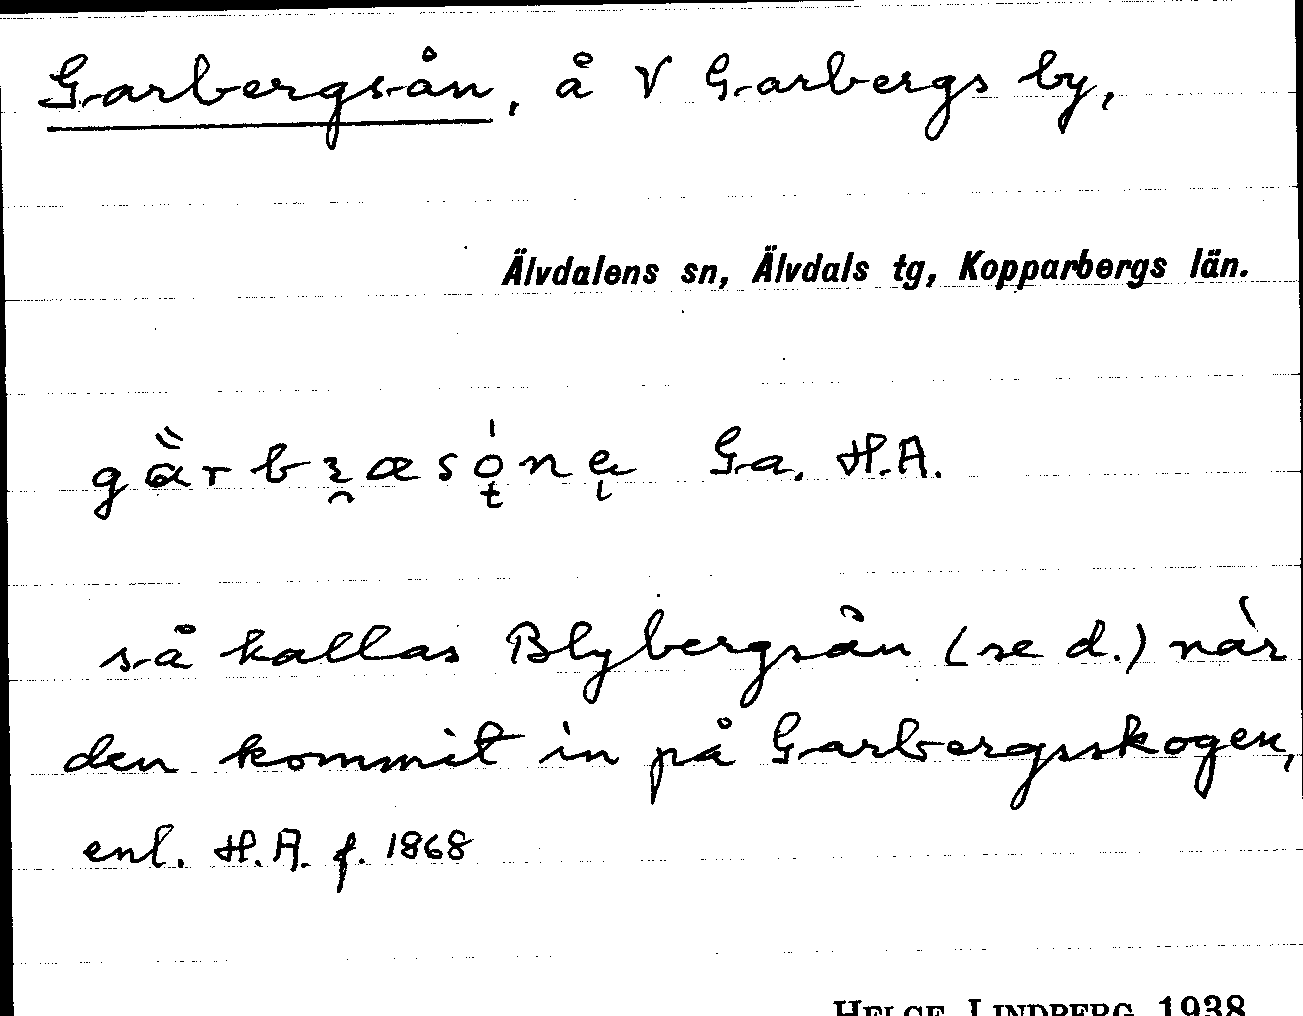 Garbergsån, å V Garbergs by,
Älvdalens sn, Älvdals tg, Kopparbergs län.
Ga. H.A.
så kallas Blybergsån (se d.) när
den kommit in på Garbergsskogen,
enl. H.A. f. 1868
HELGE LINDBERG 1938